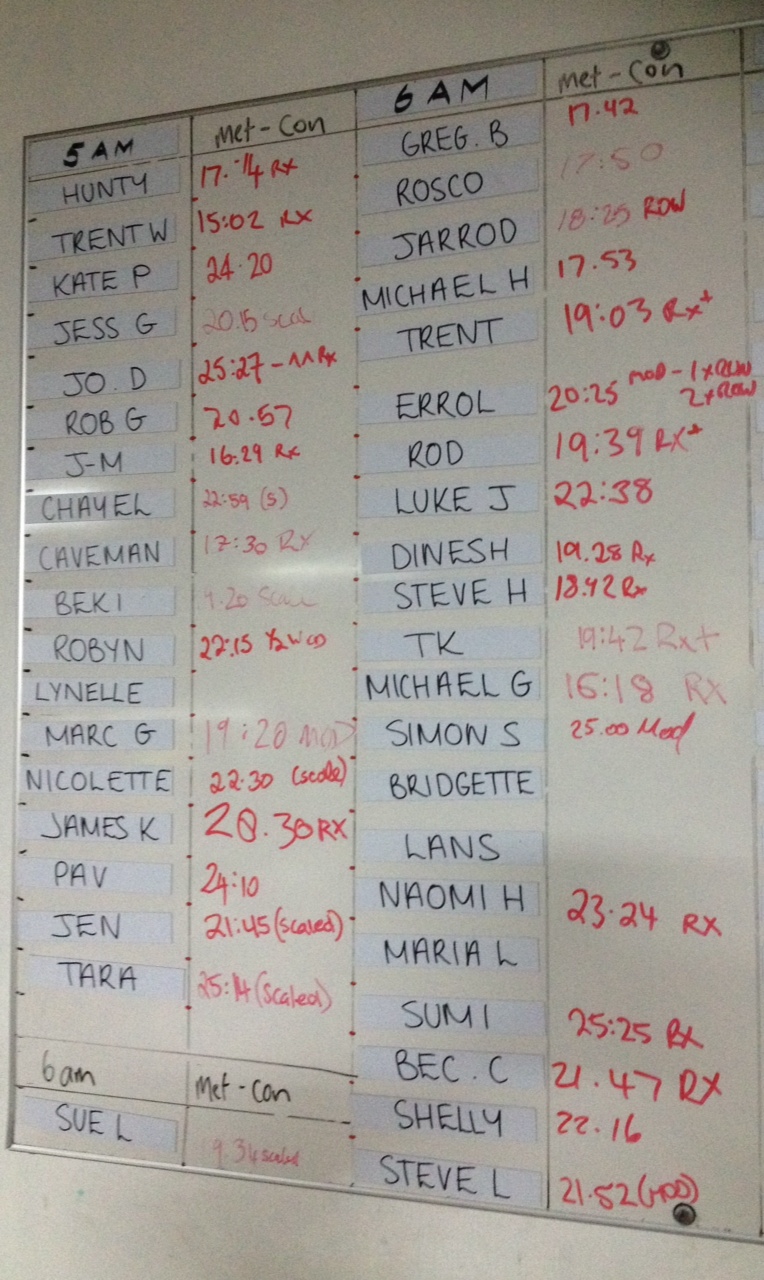 5 AM met-con
HUNTY 17.14 Rx
TRENT W 15:02 RX
KATE P 24.20
JESS G 20.15 scal
JO. D 25:27 - Rx
ROB G 20.57
J-M 16.29 Rx
CHAYEL 22:59 (S)
CAVEMAN 17:30 RX
BEKI
ROBYN 22:15 1/2 WOD
LYNELLE
MARC G 19:20 MOD
NICOLETTE 22.30 (scale)
JAMES K 20.30 RX
PAV 24:10
JEN 21:45 (scaled)
TARA 25:14 (scaled)
6am met-con
SUE L 19.34 scaled
6 AM met-con
GREG. B 17.42
ROSCO 17:50
JARROD 18:25 ROW
MICHAEL H 17.53
TRENT 19:03 Rx+
ERROL 20:25 MOD - 1xROW
2xROW
ROD 19:39 RX+
LUKE J 22:38
DINESH 19.28 Rx
STEVE H 18.42 Rx
TK 19:42 Rx+
MICHAEL G 16:18 RX
SIMON S 25.00 Mod
BRIDGETTE
LANS
NAOMI H 23.24 RX
MARIA L
SUMI 25:25 RX
BEC. C 21.47 RX
SHELLY 22.16
STEVE L 21.52 (MOD)